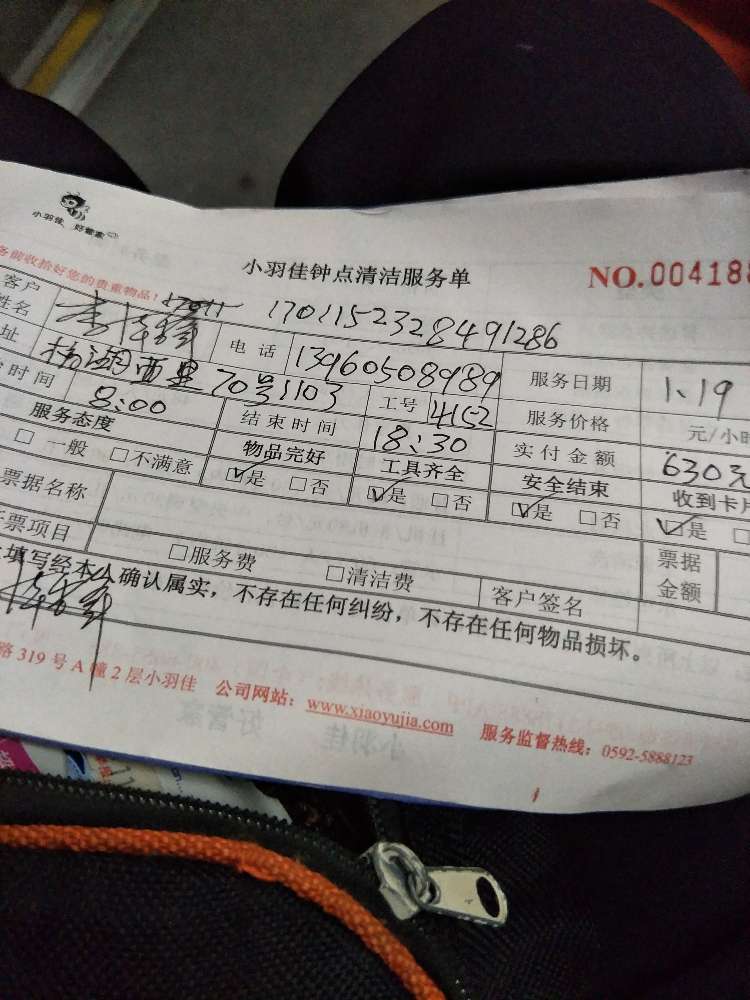 小羽佳 好管家
小羽佳钟点清洁服务单
NO.004188
务前收拾好您的贵重物品!
17011523284491286
客户姓名 李 电话 13960508989 服务日期 1.19
址 湖西里70号1103 工号 4152 服务价格 元/小时
时间 8:00 结束时间 18:30 实付金额 630元
服务态度 物品完好 工具齐全 安全结束 收到卡片
□一般 □不满意 ☑是 □否 ☑是 □否 ☑是 □否 ☑是 □
票据名称 票据金额
票项目 □服务费 □清洁费 客户签名
填写经本人确认属实，不存在任何纠纷，不存在任何物品损坏。
路319号A幢2层小羽佳 公司网站：www.xiaoyujia.com 服务监督热线：0592-5888123
小羽佳 好管家